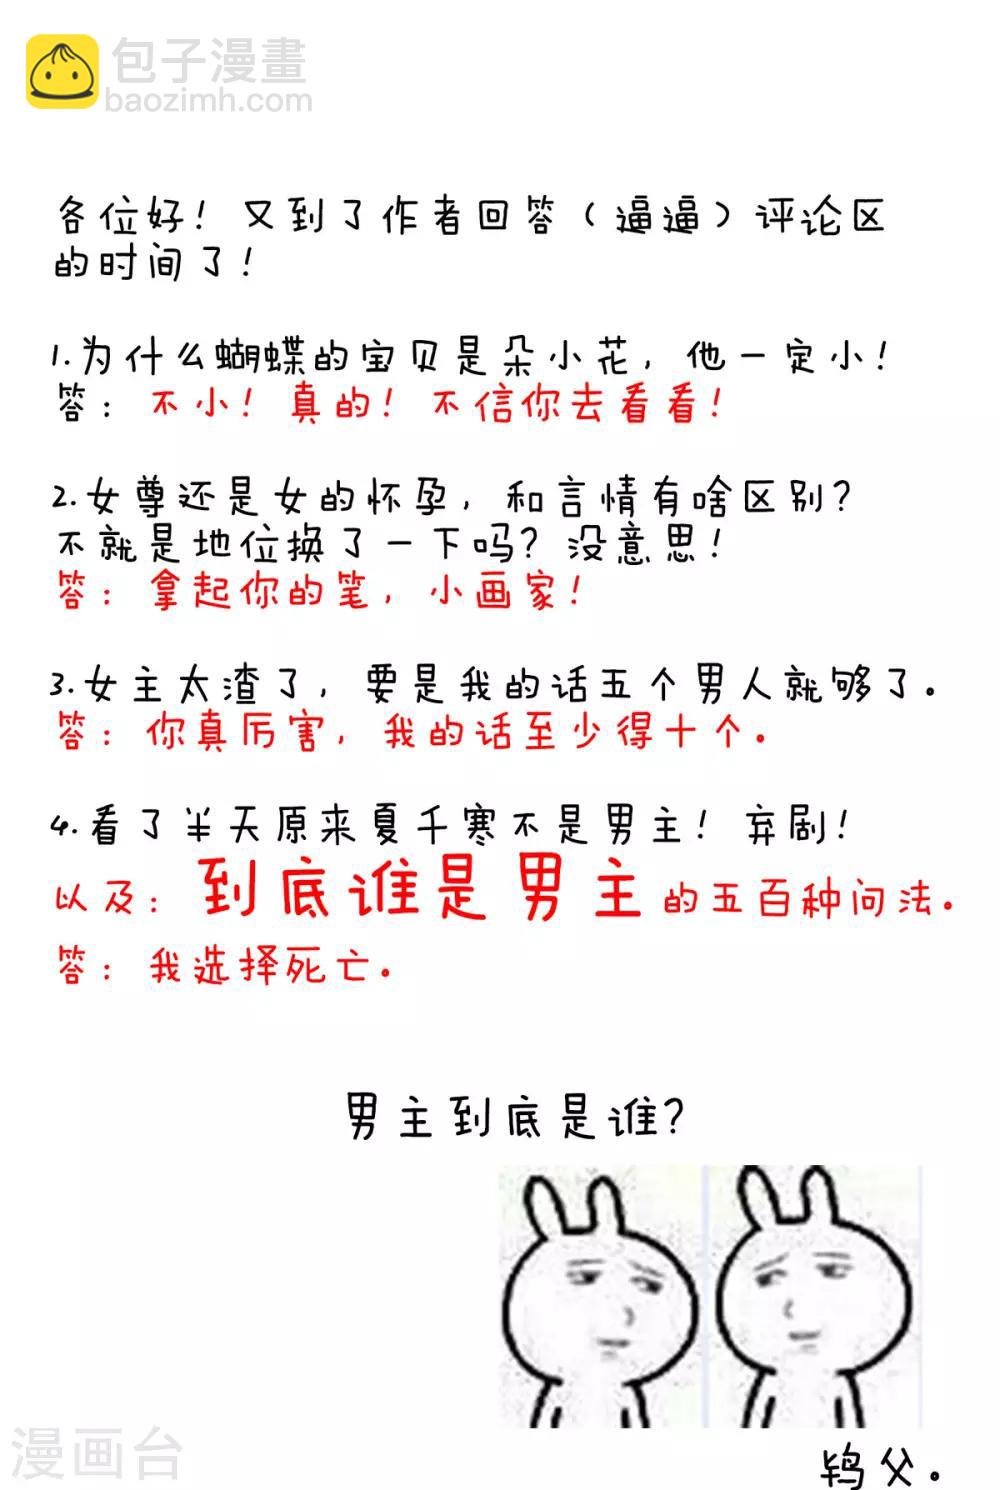 包子漫畫
baozimh.com
各位好！又到了作者回答（逼逼）评论区
的时间了！
1.为什么蝴蝶的宝贝是朵小花，他一定小！
答：不小！真的！不信你去看看！
2.女尊还是女的怀孕，和言情有啥区别？
不就是地位换了一下吗？没意思！
答：拿起你的笔，小画家！
3.女主太渣了，要是我的话五个男人就够了。
答：你真厉害，我的话至少得十个。
4.看了半天原来夏千寒不是男主！弃剧！
以及：到底谁是男主的五百种问法。
答：我选择死亡。
男主到底是谁？
鸨父。
漫画台